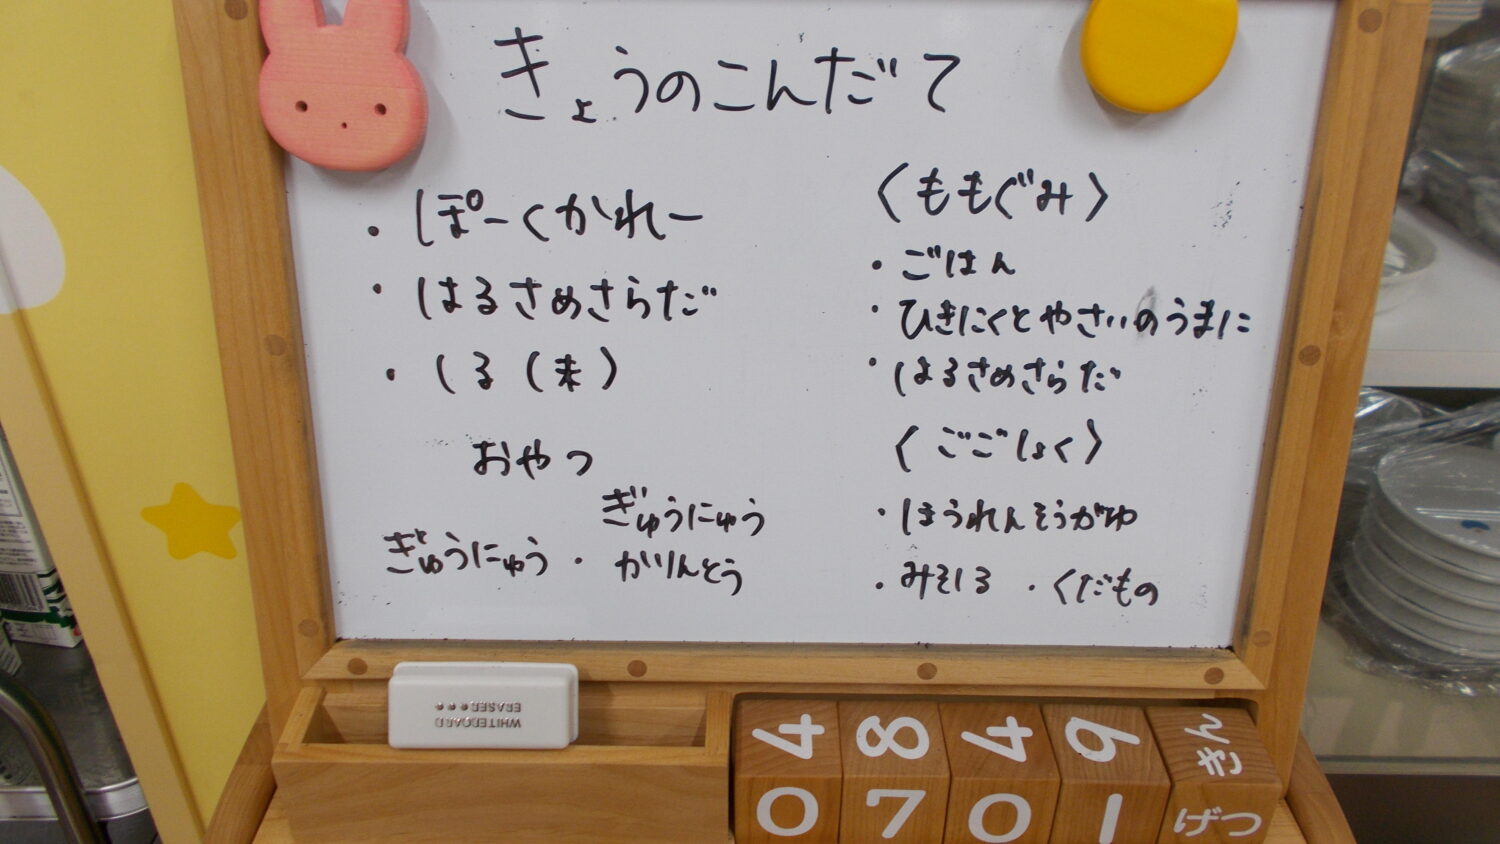 きょうのこんだて
・ぽーくかれー
・はるさめさらだ
・しる(末)
おやつ
ぎゅうにゅう・
ぎゅうにゅう
かりんとう
〈ももぐみ〉
・ごはん
・ひきにくとやさいのうまに
・はるさめさらだ
〈ごごしょく〉
・ほうれんそうがゆ
・みそしる ・くだもの
WHITEBOARD
ERASER
4 8 4 9 きん
0 7 0 1 げつ